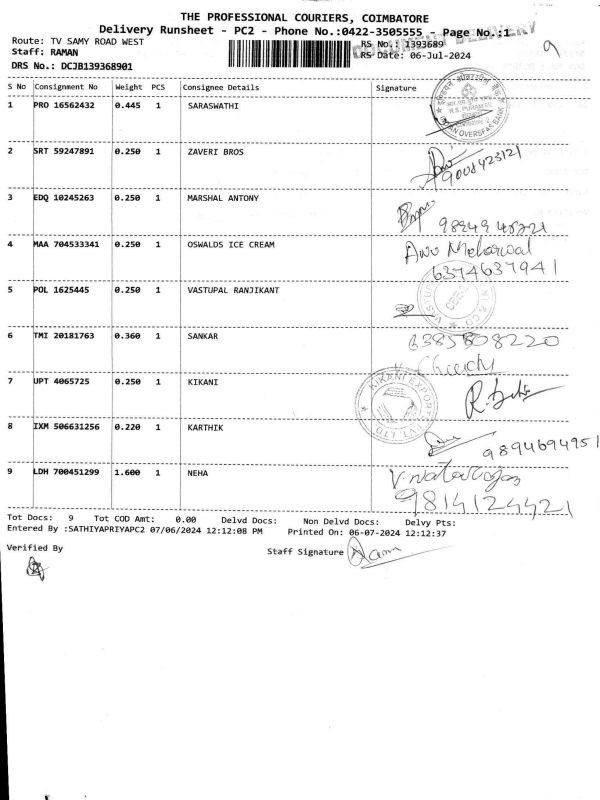 THE PROFESSIONAL COURIERS, COIMBATORE
Delivery Runsheet - PC2 - Phone No.:0422-3505555 - Page No.:1
DOCUMENT DELIVERY
9
Route: TV SAMY ROAD WEST
RS No.: 1393689
Staff: RAMAN
RS Date: 06-Jul-2024
DRS No.: DCJB139368901
S No Consignment No Weight PCS Consignee Details Signature
1 PRO 16562432 0.445 1 SARASWATHI
R.S. PURAM
INDIAN OVERSEAS BANK
2 SRT 59247891 0.250 1 ZAVERI BROS
9008423121
3 EDQ 10245263 0.250 1 MARSHAL ANTONY
4 MAA 704533341 0.250 1 OSWALDS ICE CREAM
6374637941
5 POL 1625445 0.250 1 VASTUPAL RANJIKANT
6 TMI 20181763 0.360 1 SANKAR
6385508220
7 UPT 4065725 0.250 1 KIKANI
KIKANI EXPORTS PVT. LTD.
8 IXM 506631256 0.220 1 KARTHIK
9894694951
9 LDH 700451299 1.600 1 NEHA
V. Natarajan
9814124421
Tot Docs: 9 Tot COD Amt: 0.00 Delvd Docs: Non Delvd Docs: Delvy Pts:
Entered By :SATHIYAPRIYAPC2 07/06/2024 12:12:08 PM Printed On: 06-07-2024 12:12:37
Verified By
Staff Signature Raman